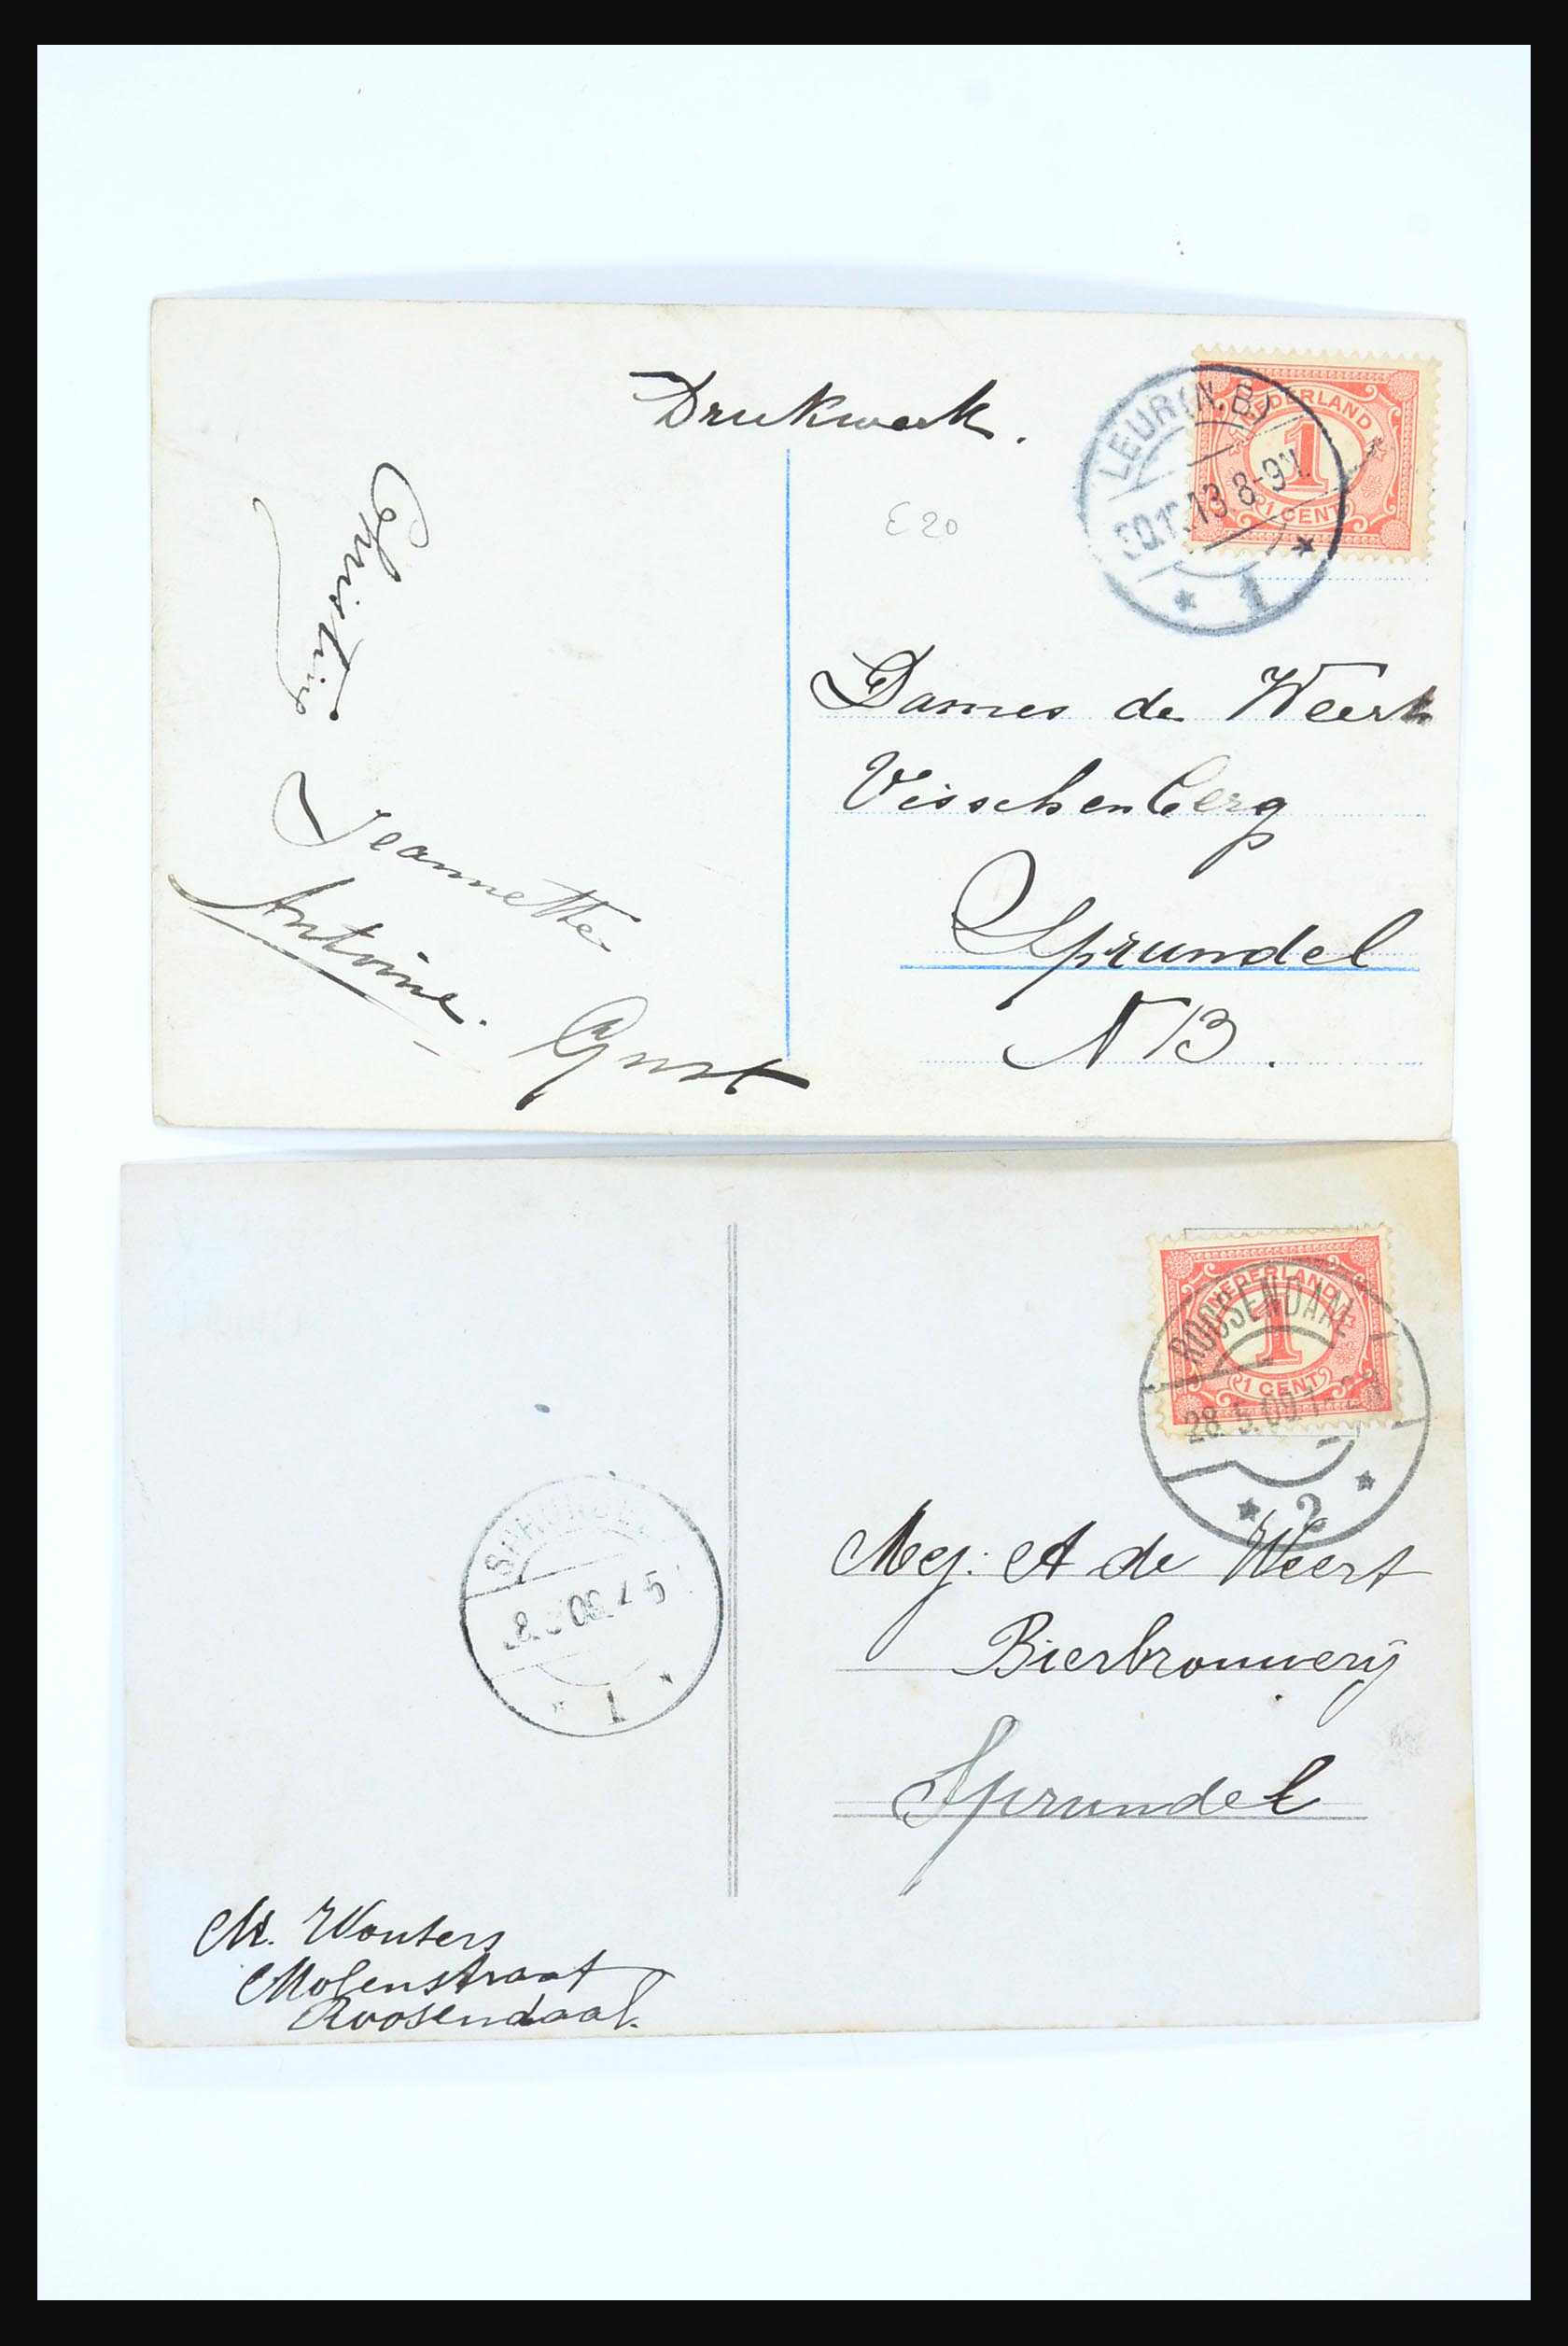 Drukwerk.
LEUR (N.B)
13 8-9V.
1
NEDERLAND
1
1 CENT
E20
Christine
Jeannette
Antoine.
Gust
Dames de Weert
Visschenberg
Sprundel
N B.
NEDERLAND
1
1 CENT
ROOSENDAAL
28.5.09.1-2
2
SPRUNDEL
4-5
1
Mej: A de Weert
Bierbrouwerij
Sprundel
M. Wouters
Molenstraat
Roosendaal.